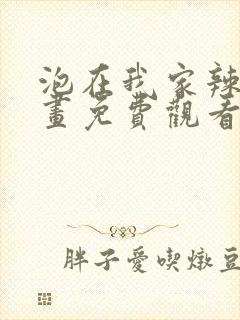 泡在我家辣
畫免費觀看
胖子愛喫燉豆